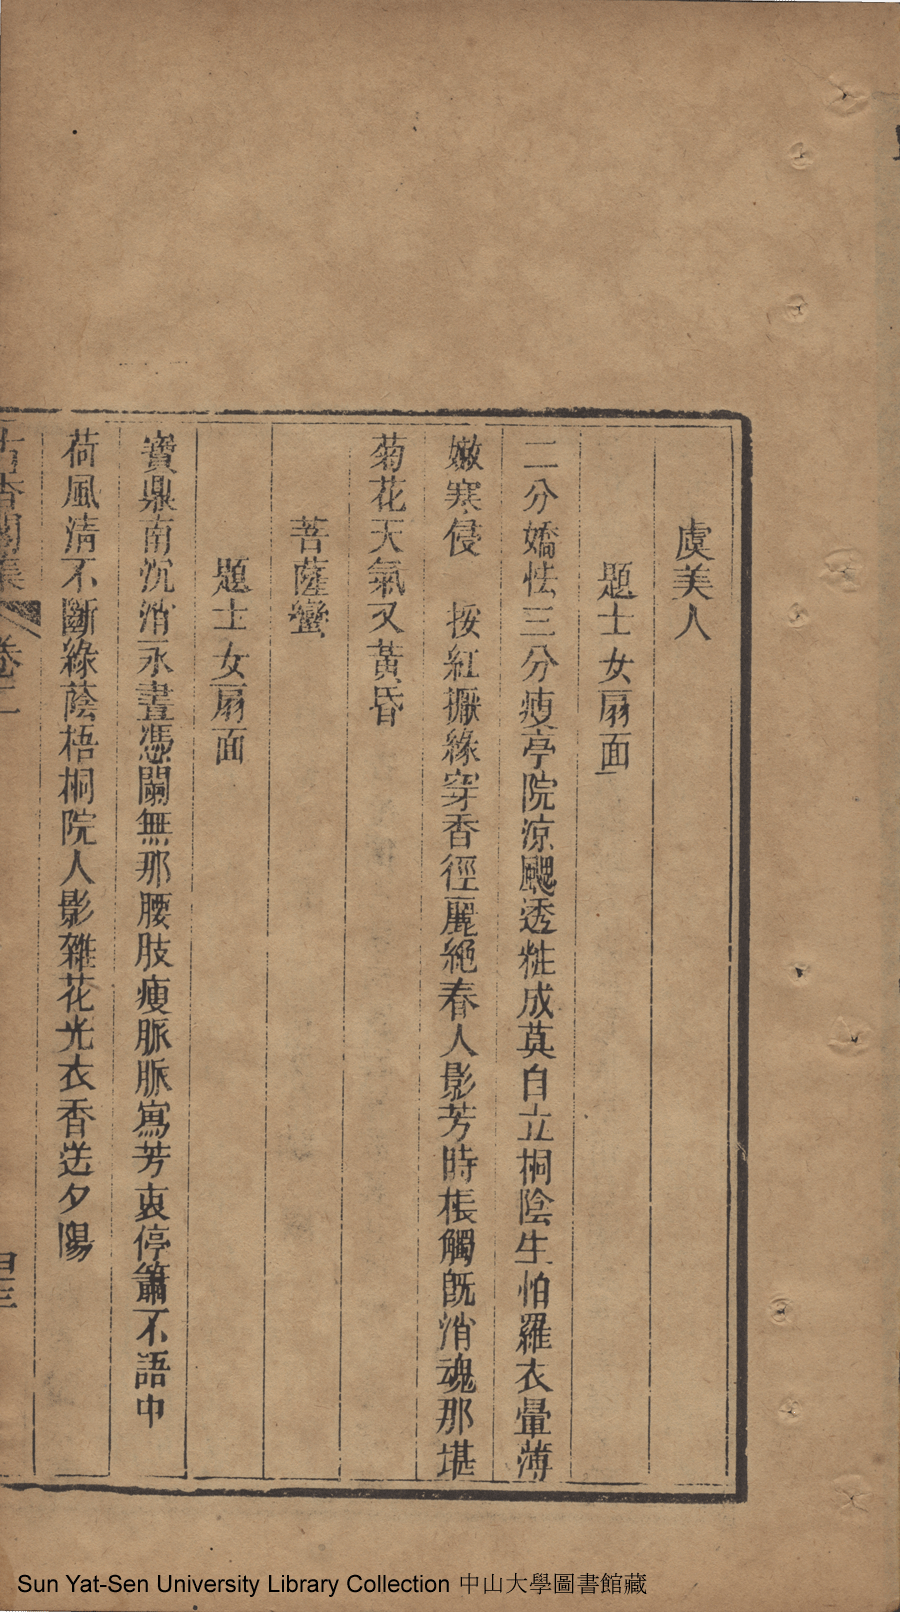 虞美人
題士女扇面
二分嬌怯三分瘦亭院涼颸透粧成莫自立桐陰生怕羅衣暈薄
嫩寒侵 按紅擫緣穿香徑麗絕春人影芳時棖觸旣消魂那堪
菊花天氣又黃昏
菩薩蠻
題士女扇面
寶鼎南沉消永晝憑闌無那腰肢瘦脈脈寫芳衷停簫不語中
荷風清不斷綠蔭梧桐院人影雜花光衣香送夕陽
香閣集 卷二
Sun Yat-Sen University Library Collection 中山大學圖書館藏